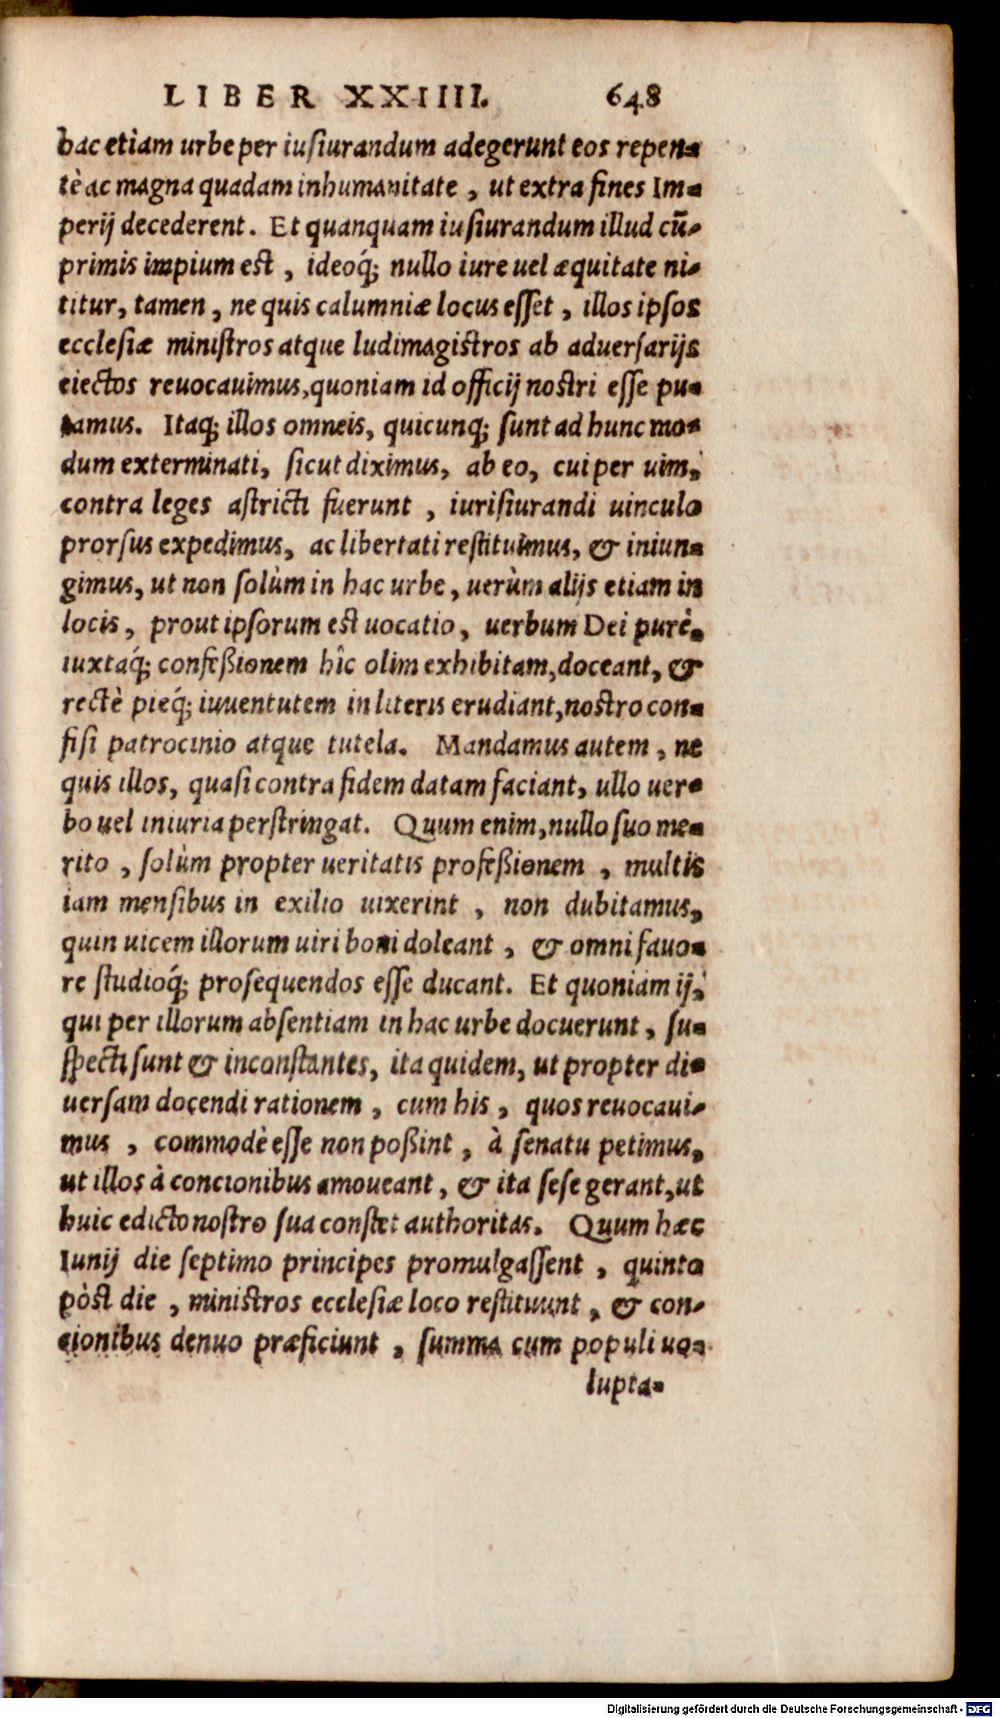 LIBER XXIIII. 648
hac etiam urbe per iusiurandum adegerunt eos repen-
tè ac magna quadam inhumanitate, ut extra fines Im-
perij decederent. Et quanquam iusiurandum illud cū-
primis impium est, ideoq́; nullo iure uel æquitate ni-
titur, tamen, ne quis calumniæ locus esset, illos ipsos
ecclesiæ ministros atque ludimagistros ab aduersarijs
eiectos reuocauimus, quoniam id officij nostri esse pu-
tamus. Itaq; illos omneis, quicunq; sunt ad hunc mo-
dum exterminati, sicut diximus, ab eo, cui per uim,
contra leges astricti fuerunt, iurisiurandi uinculo
prorsus expedimus, ac libertati restituimus, & iniun-
gimus, ut non solùm in hac urbe, uerùm alijs etiam in
locis, prout ipsorum est uocatio, uerbum Dei purè,
iuxtaq́; confeßionem hîc olim exhibitam, doceant, &
rectè pieq́; iuuentutem in literis erudiant, nostro con-
fisi patrocinio atque tutela. Mandamus autem, ne
quis illos, quasi contra fidem datam faciant, ullo uer-
bo uel iniuria perstringat. Quum enim, nullo suo me-
rito, solùm propter ueritatis profeßionem, multis
iam mensibus in exilio uixerint, non dubitamus,
quin uicem illorum uiri boni doleant, & omni fauo-
re studioq́; prosequendos esse ducant. Et quoniam ij,
qui per illorum absentiam in hac urbe docuerunt, su-
specti sunt & inconstantes, ita quidem, ut propter di-
uersam docendi rationem, cum his, quos reuocaui-
mus, commodè esse non poßint, à senatu petimus,
ut illos à concionibus amoueant, & ita sese gerant, ut
huic edicto nostro sua constet authoritas. Quum hæc
Iunij die septimo principes promulgassent, quinto
pòst die, ministros ecclesiæ loco restituunt, & con-
cionibus denuo præficiunt, summa cum populi uo-
lupta-
Digitalisierung gefördert durch die Deutsche Forschungsgemeinschaft - DFG